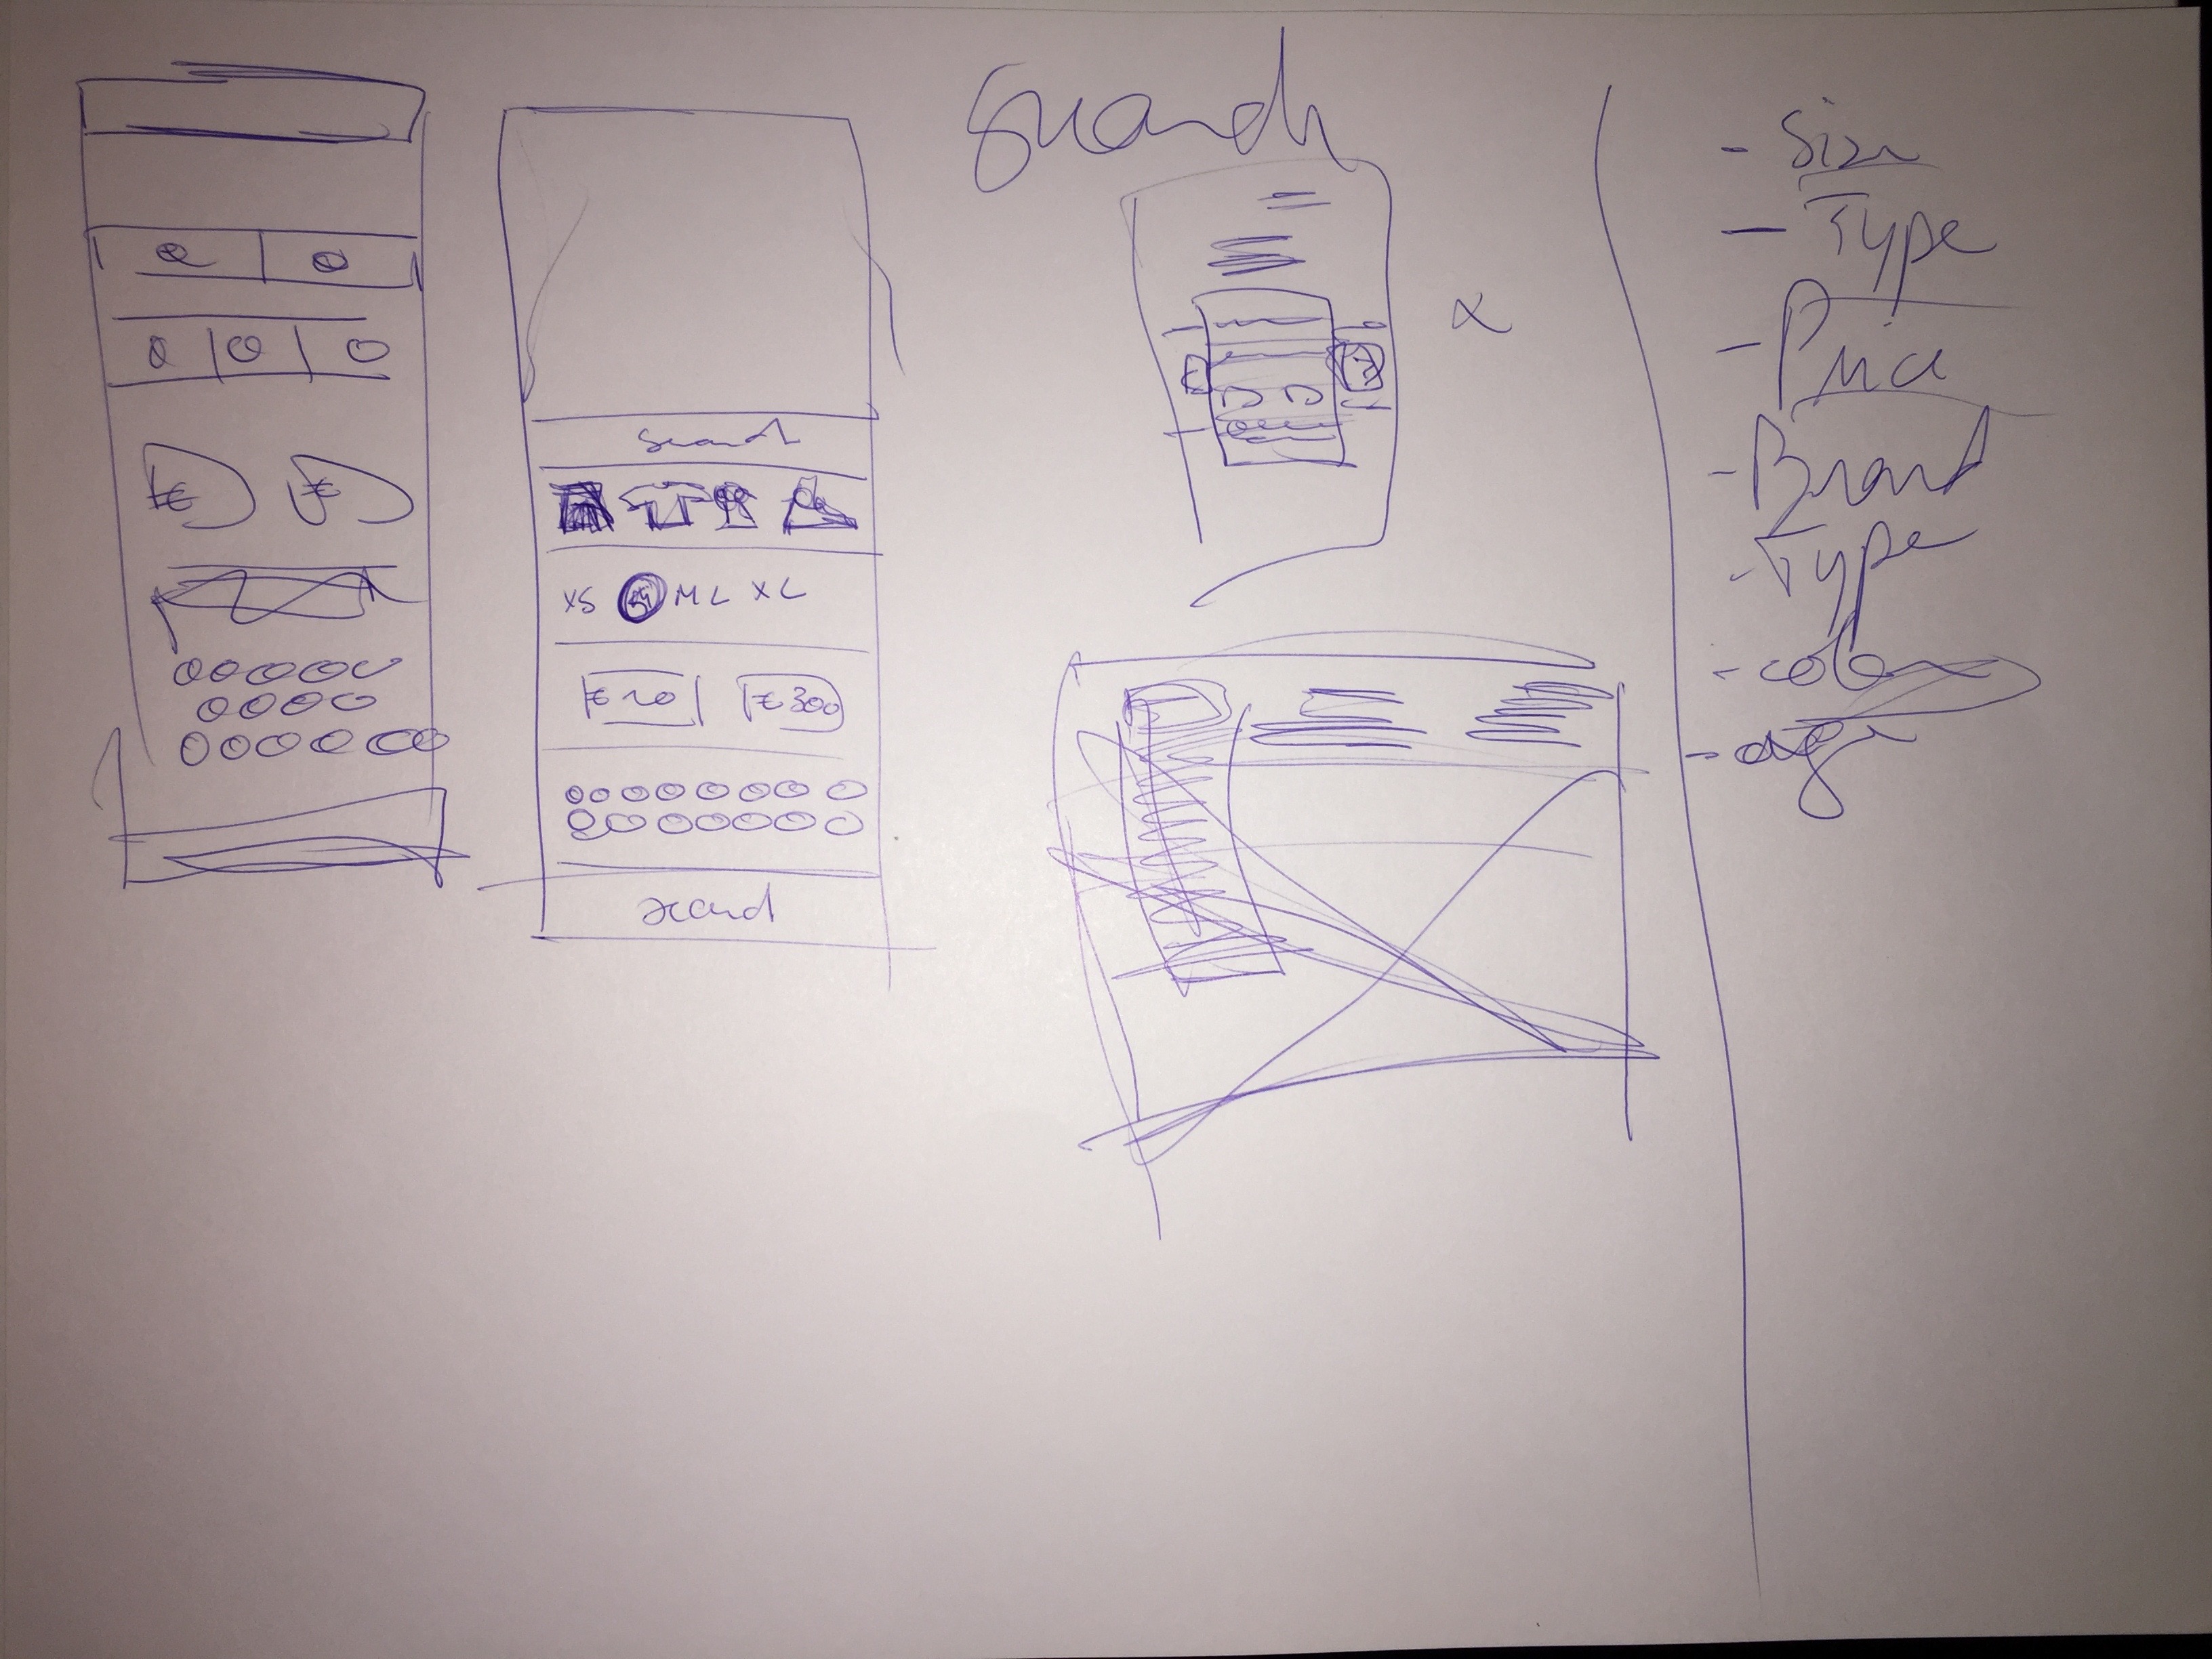 Search
€ €
search
XS S M L XL
€ 20 € 300
search
- Size
- Type
- Price
- Brand
- Type
- color
- age